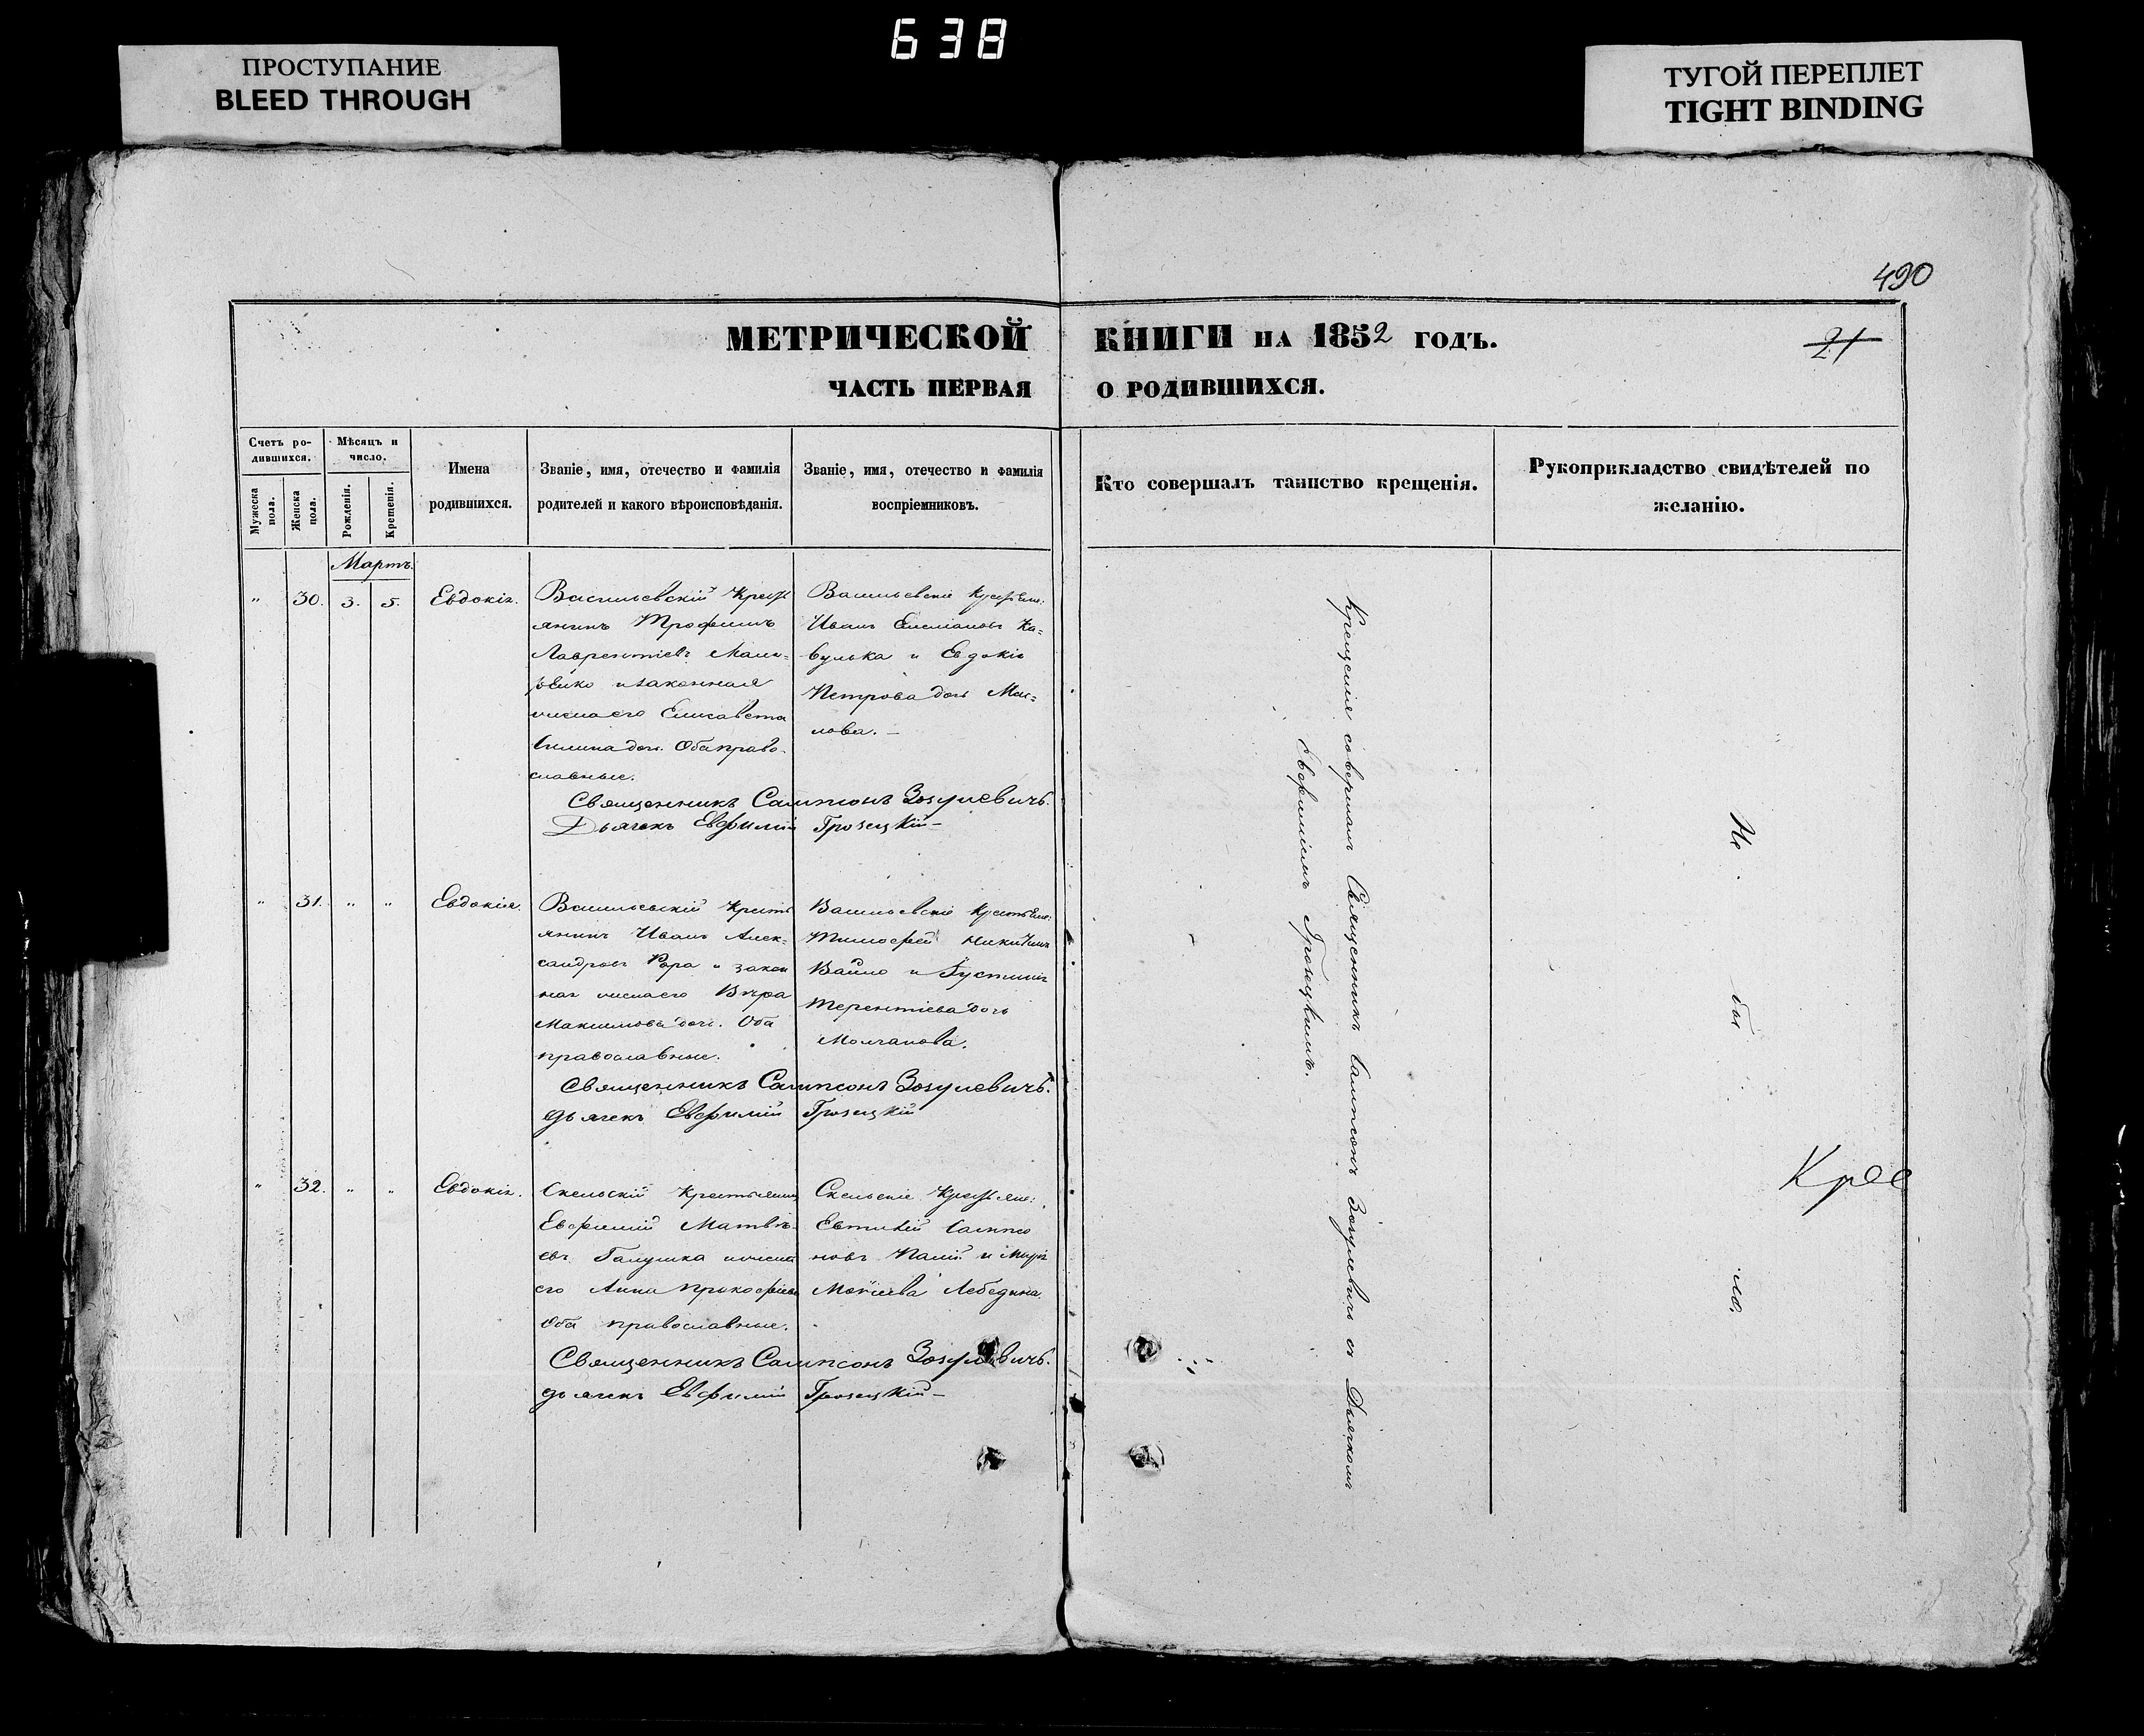 638
ПРОСТУПАНИЕ
BLEED THROUGH
ТУГОЙ ПЕРЕПЛЕТ
TIGHT BINDING
490
МЕТРИЧЕСКОЙ КНИГИ НА 1852 ГОДЪ.
21
ЧАСТЬ ПЕРВАЯ О РОДИВШИХСЯ.
Счетъ ро-
дившихся.
Мужеска пола.
Женска пола.
Мѣсяцъ и
число.
Рожденія.
Крещенія.
Имена
родившихся.
Званіе, имя, отечество и фамилія
родителей и какого вѣроисповѣданія.
Званіе, имя, отечество и фамилія
воспріемниковъ.
Кто совершалъ таинство крещенія.
Рукоприкладство свидѣтелей по
желанію.
Мартъ.
" 30. 3. 5. Евдокія.
Васильевскій Крест
янинъ Трофимъ
Лаврентіевъ
и законная
жена его Елисавета
дочь. Оба право-
славные.
Васильевскіе
Иванъ Емеліановъ Ка-
вулька и Евдокія
Петрова дочь Мас-
лова. —
Священникъ Сампсонъ Зозулевичъ.
Дьячекъ Евфимій Грозецкій —
" 31. " " Евдокія.
Васильевскій Кресть
янинъ Иванъ Алек-
сандровъ и закон
ная жена его Вѣра
Максимова дочь. Оба
православные.
Васильевскіе
Тимофей
и Іустинія
Терентіева дочь
Молчанова.
Священникъ Сампсонъ Зозулевичъ.
Дьячекъ Евфимій Грозецкій
" 32. " " Евдокія.
Скельскій Крестьянинъ
Евфимій Матвѣ-
евъ Галушка и жена
его Анна Прокофіева
Оба православные.
Скельскіе
Евтихій Сампсо
новъ Палій и Марія
Мокіева Лебедина.
Священникъ Сампсонъ Зозулевичъ.
Дьячекъ Евфимій Грозецкій —
Крещенія совершалъ Священникъ Сампсонъ Зозулевичъ съ Дьячкомъ
Евфиміемъ Грозецкимъ.
Не бы ло.
Крес